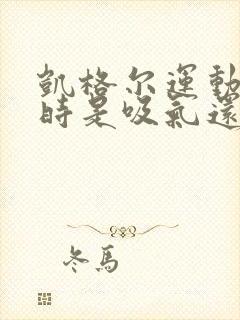 凱格尔運動
時是吸氣還
冬馬